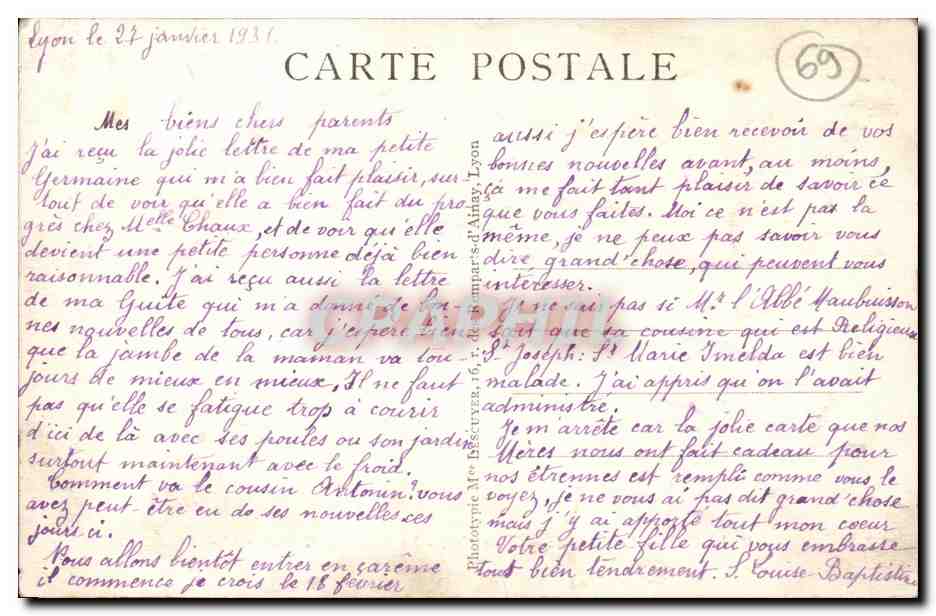 Lyon le 27 janvier 1931.
CARTE POSTALE
69
Mes biens chers parents
J'ai reçu la jolie lettre de ma petite
Germaine qui m'a bien fait plaisir, sur-
tout de voir qu'elle a bien fait du pro
grès chez Melle Chaux, et de voir qu'elle
devient une petite personne déjà bien
raisonnable. J'ai reçu aussi la lettre
de ma Guite qui m'a donné de bon-
nes nouvelles de tous, car j'espère bien
que la jambe de la maman va tou-
jours de mieux en mieux. Il ne faut
pas qu'elle se fatigue trop à courir
d'ici de là avec ses poules ou son jardin
surtout maintenant avec le froid.
Comment va le cousin Antonin? vous
avez peut-être eu de ses nouvelles ces
jours ci.
Nous allons bientôt entrer en carême
il commence je crois le 18 février
Phototypie Mce LESCUYER, 16, r. des Remparts-d'Ainay, Lyon
aussi j'espère bien recevoir de vos
bonnes nouvelles avant, au moins,
çà me fait tant plaisir de savoir ce
que vous faites. Moi ce n'est pas la
même, je ne peux pas savoir vous
dire grand'chose, qui peuvent vous
intéresser.
Je ne sais pas si Mr l'Abbé Maubuisson
sait que sa cousine qui est Religieuse
St Joseph: Sr Marie Imelda est bien
malade. J'ai appris qu'on l'avait
administré.
Je m'arrête car la jolie carte que nos
Mères nous ont fait cadeau pour
nos étrennes est rempli comme vous le
voyez, je ne vous ai pas dit grand'chose
mais j'y ai apporté tout mon coeur
Votre petite fille qui vous embrasse
tout bien tendrement. S. Louise Baptistine
CPAPHIL